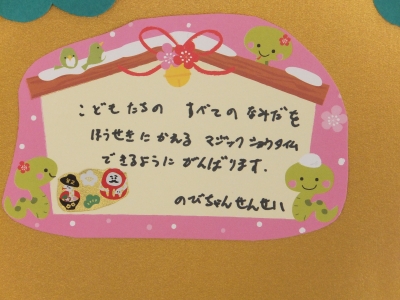 こどもたちの すべての なみだを
ほうせきに かえる マジックショウタイム
できるように がんばります.
のびちゃんせんせい